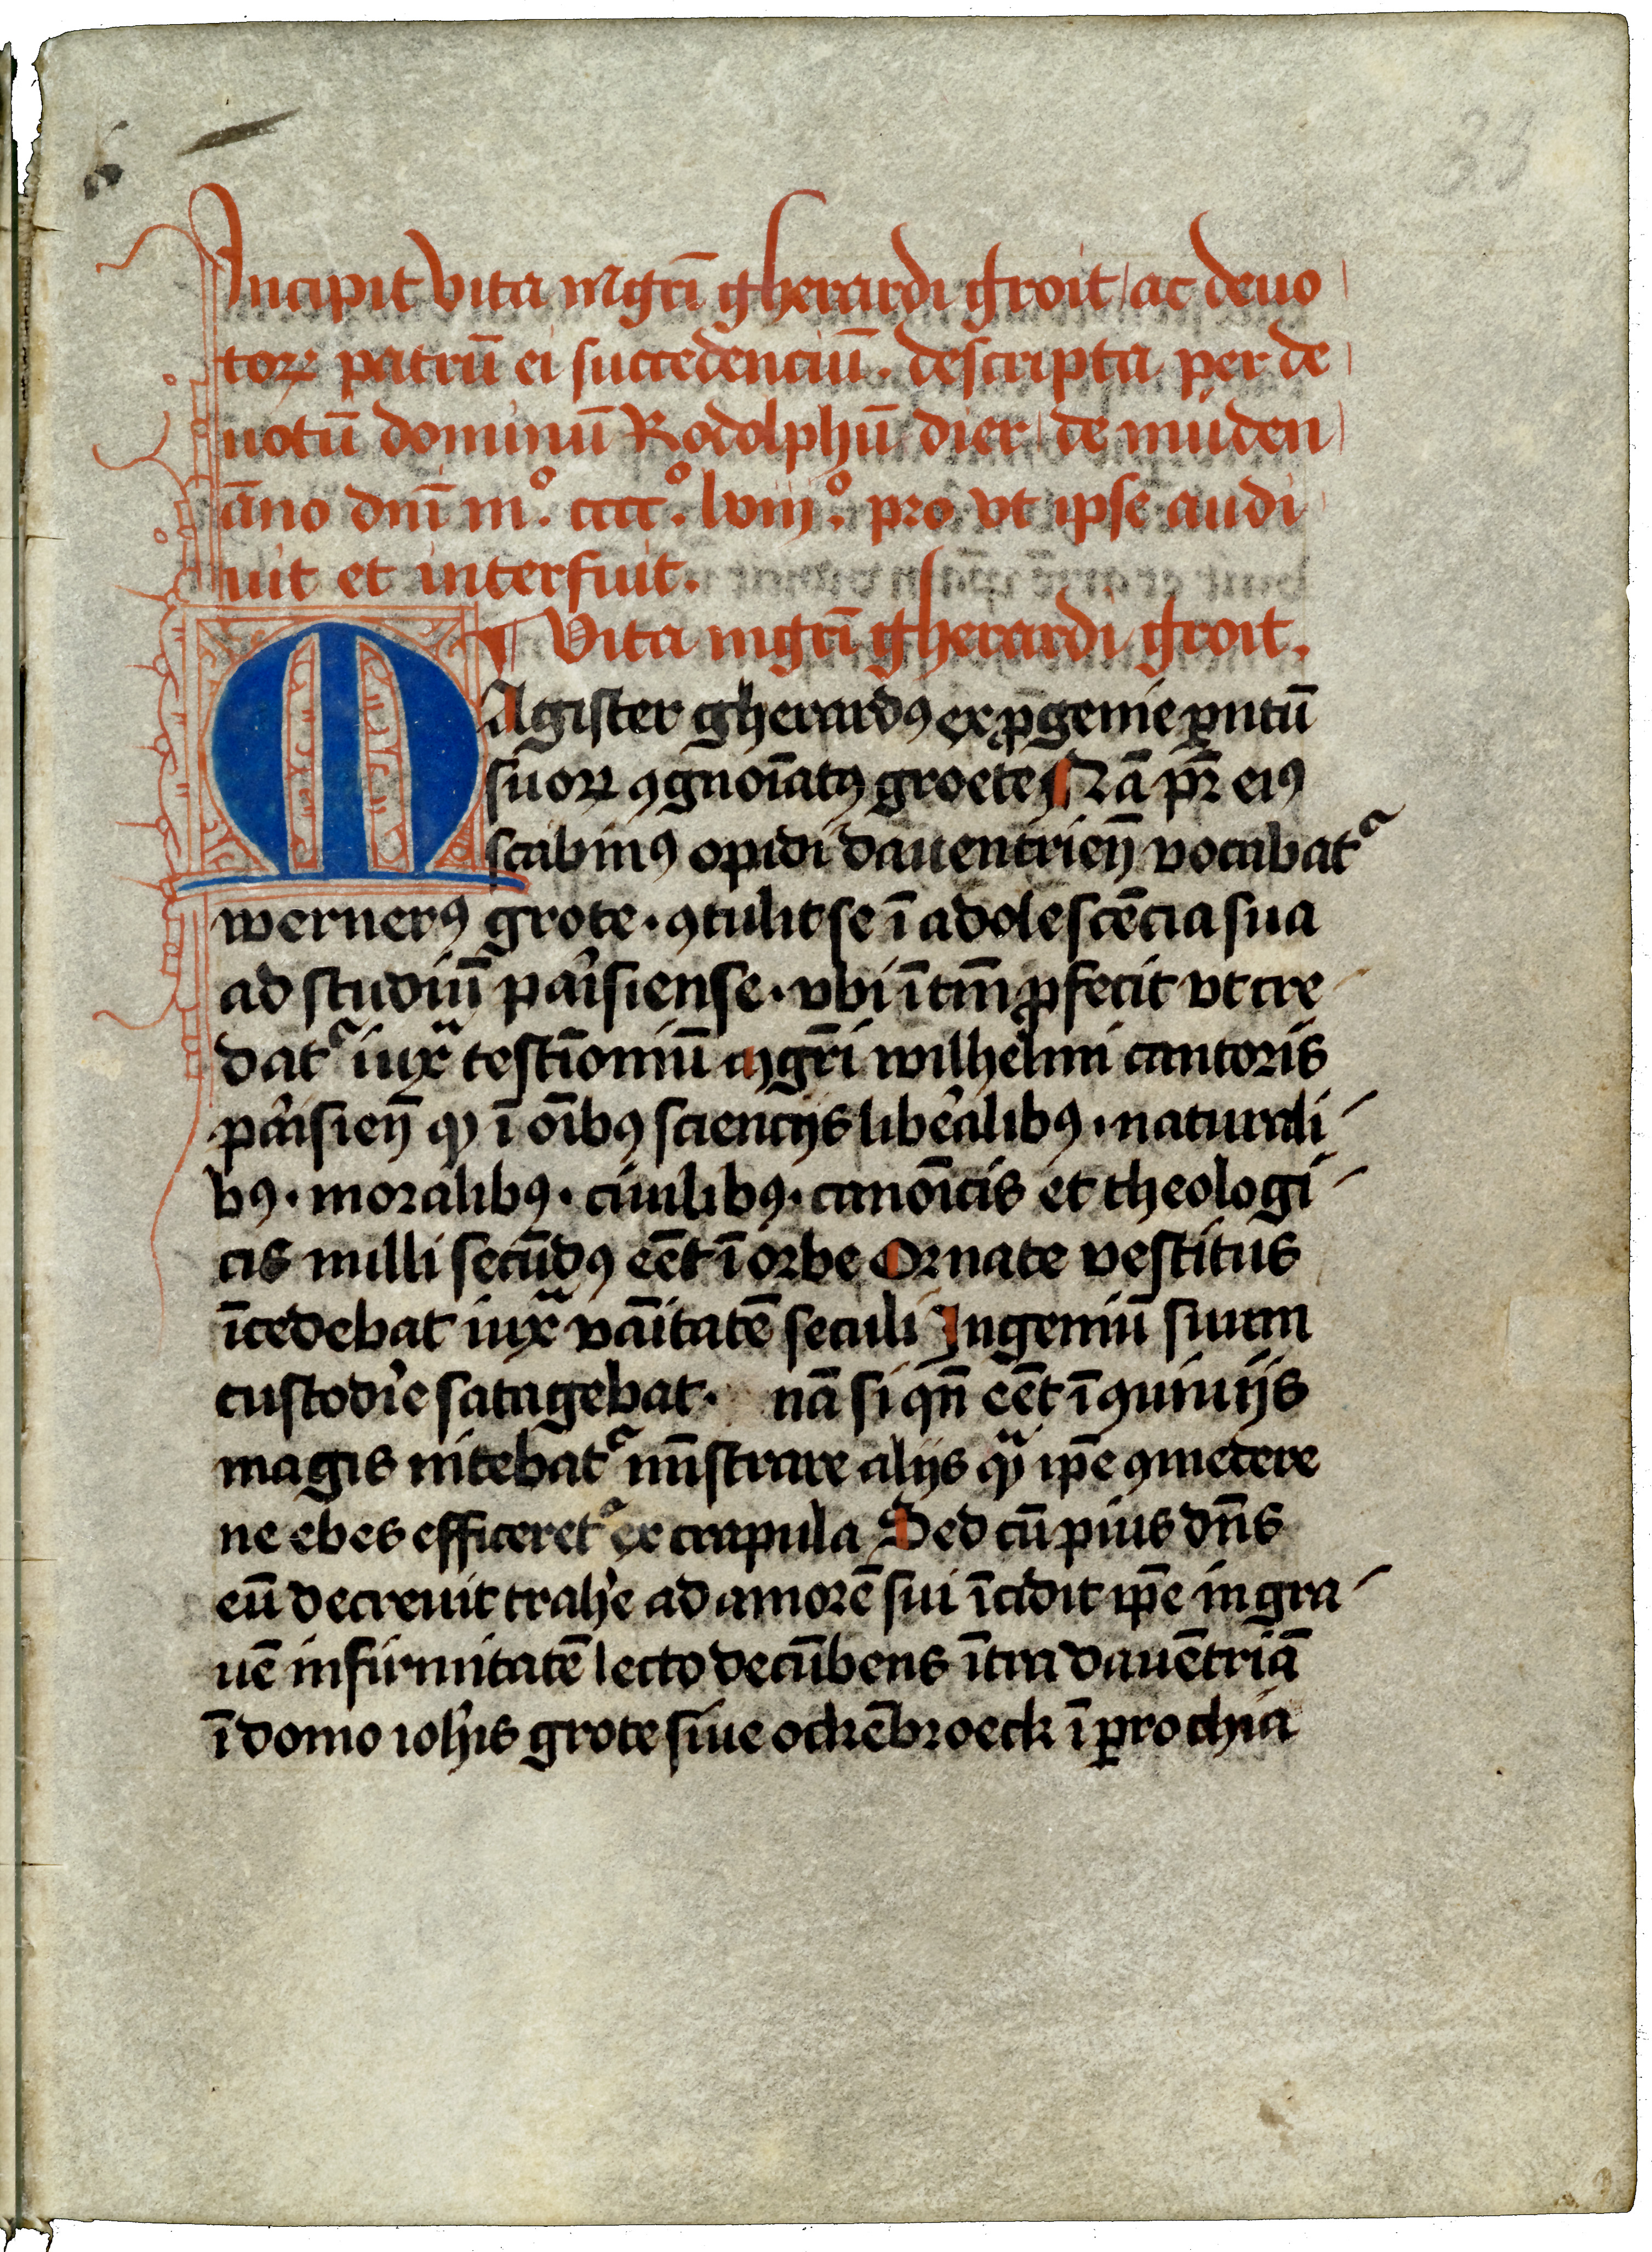 33
Incipit vita mgr̄i gherardi groit / ac deuo
toꝝ patrū ei succedenciū . descripta per de
uotū dominū Rodolphū dier de muden
āno dn̄i mͦ . ccccͦ . lviijͦ . pro vt ipse audi
uit et interfuit .
¶ Vita mgr̄i gherardi groit .
MAgister gherardꝰ ex ꝓgenie pn̄tū
suoꝝ ꝯgnoīatꝰ groete Nā pr̄ eiꝰ
scabinꝰ opidi dauentrien̄ vocabat᷑
wernerꝰ grote . ꝯtulit se ī adolescēcia sua
ad studiū pa͛isiense . vbi ītm̄ ꝓfecit vt cre
dat᷑ iuxᷓ testīoniū mgr̄i wilhelmi cantoris
pa͛isien̄ ꝙ ī oībꝰ sciencijs libe͛alibꝰ . naturali
bꝰ . moralibꝰ . ciuilibꝰ . canoīcis et theologi
cis nulli secūdꝰ eēt ī orbe Ornate vestitus
īcedebat iuxᷓ vāitatē seculi Ingeniū suum
custodi͛e satagebat . nā si qn̄ eēt ī ꝯuiuijs
magis nitebat᷑ mīstrare alijs qᷓ ip̄e ꝯmedere
ne ebes efficeret᷑ ex crapula Sed cū pius dn̄s
eū decreuit trah͛e ad amorē sui īcidit ip̄e in gra
uē infirmitatē lecto decūbens ītra dauētriā
ī domo ioh̄is grote siue ockēbroeck ī ꝑrochia